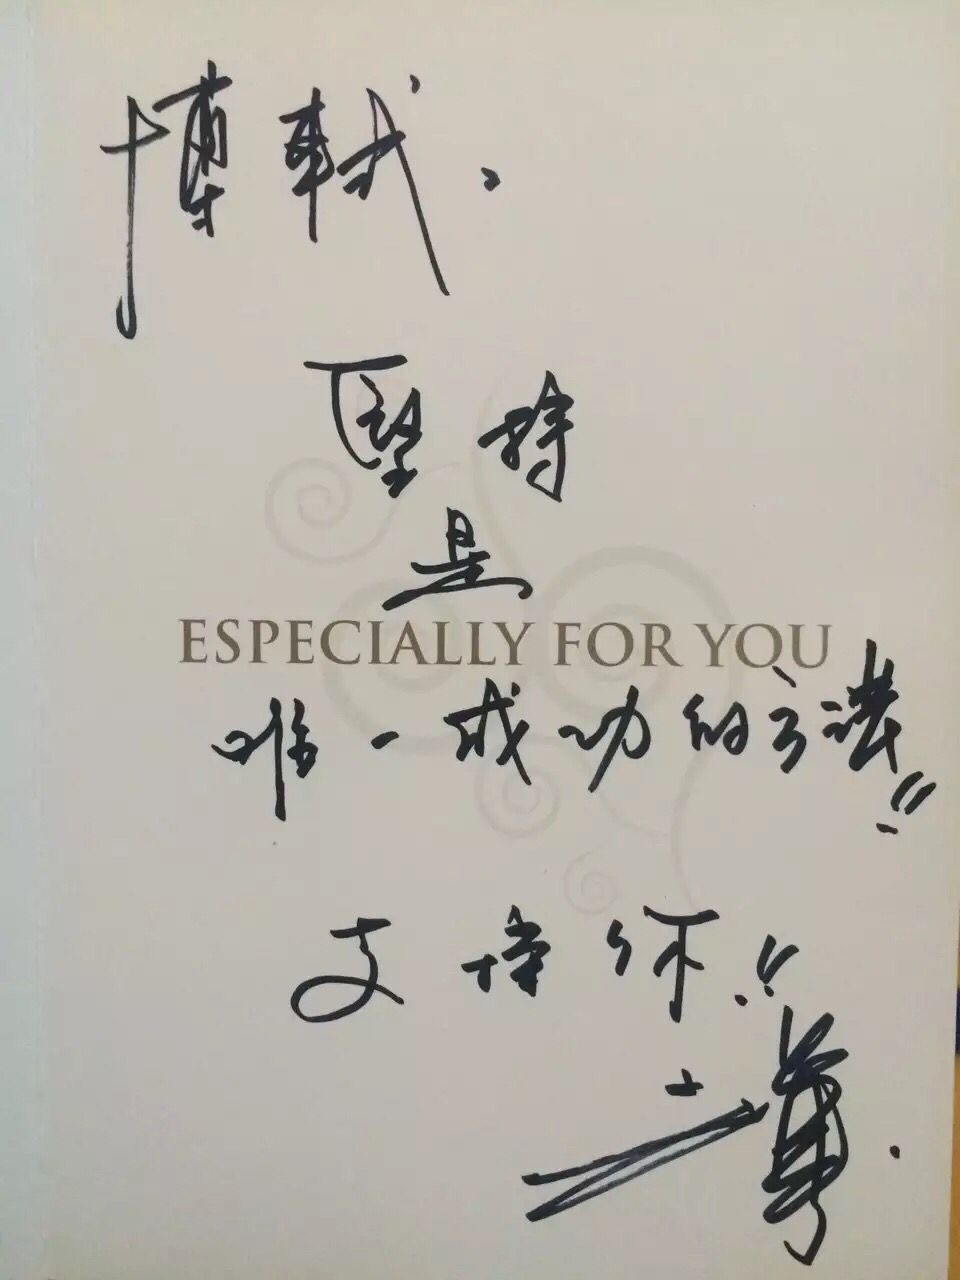 博軾、
堅持
是
ESPECIALLY FOR YOU
唯一成功的方法!!
支持你!!